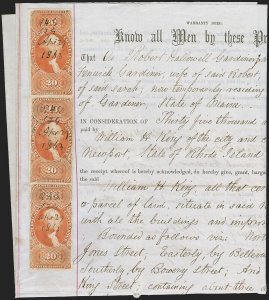 WARRANTY DEED.
Know all Men by these Pr
That We Robert Hallowell Gardiner
Gardiner, wife of said Robert,
of said Sarah, now temporarily residing
of Gardiner, State of Maine
IN CONSIDERATION OF Thirty five thousand
paid by
William H King of the city and c
Newport, State of Rhode Island
the receipt whereof is hereby acknowledged, do hereby give, grant, bargain
the said
William H. King, all that cer
or parcel of land, situate in said
with all the buildings and improve
Bounded as follows viz: Nort
Jones Street, Easterly, by Bellevue
Southerly by Bowery Street; And
King Street, containing about three
20
20
20